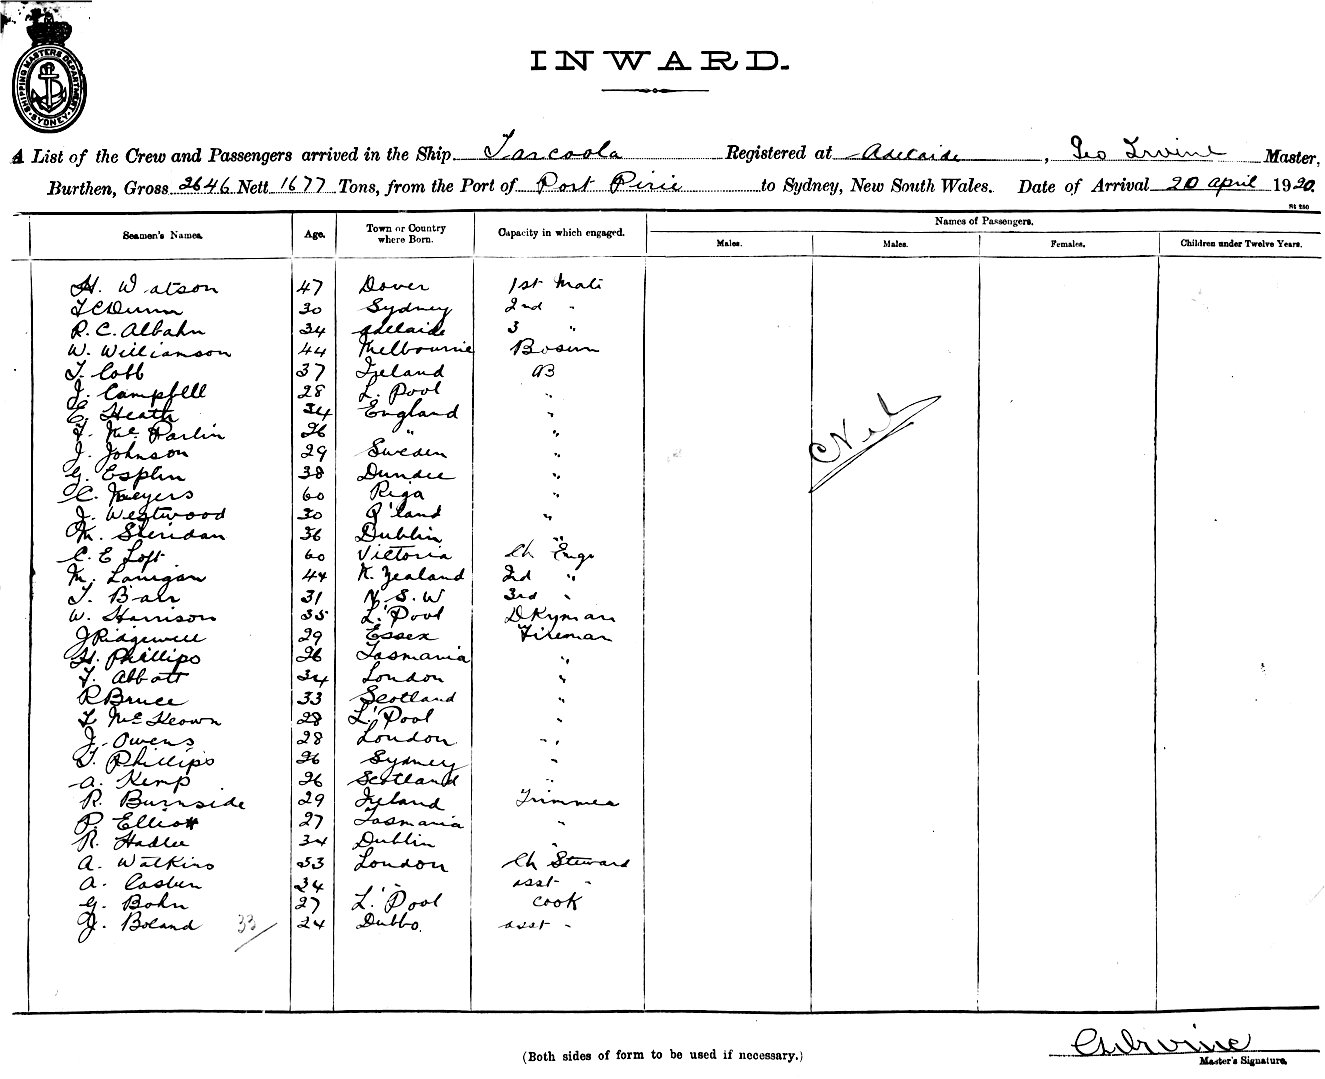 SHIPPING MASTERS DEPARTMENT SYDNEY
INWARD.
A List of the Crew and Passengers arrived in the Ship Tarcoola Registered at Adelaide, Geo Irvine Master,
Burthen, Gross 2646 Nett 1677 Tons, from the Port of Port Pirie to Sydney, New South Wales. Date of Arrival 20 April 1920.
St 250
Seamen's Names. Age. Town or Country where Born. Capacity in which engaged. Names of Passengers.
Males. Males. Females. Children under Twelve Years.
H. Watson 47 Dover 1st Mate
T C Dunn 30 Sydney 2nd "
R. C. Albahn 34 Adelaide 3 "
W. Williamson 44 Melbourne Bosun
T. Cobb 37 Ireland AB
J. Campbell 28 L. Pool "
E. Heath 34 England "
T. Mc Parlin 26 " "
J. Johnson 29 Sweden "
G. Esplin 38 Dundee "
C. Meyers 60 Riga "
J. Westwood 30 Q'land "
M. Sheridan 36 Dublin "
C. E Loft 60 Victoria Ch Engr
M. Lanigan 44 N. Zealand 2nd "
T. Barr 31 N. S. W 3rd "
W. Harrison 35 L'Pool DKyman
J Ridgewell 29 Essex Fireman
H. Phillips 26 Tasmania "
T. Abbott 34 London "
R Bruce 33 Scotland "
T. McKeown 28 L'Pool "
J. Owens 28 London "
T. Phillips 26 Sydney "
A. Kemp 26 Scotland "
R. Burnside 29 Ireland Trimmer
P. Elliott 27 Tasmania "
R. Hadlee 34 Dublin "
A. Watkins 53 London Ch Steward
A. 34 " asst "
G. Bohn 27 L'Pool cook
J. Boland 33 24 Dubbo. asst "
Nil
(Both sides of form to be used if necessary.)
G Irvine
Master's Signature.